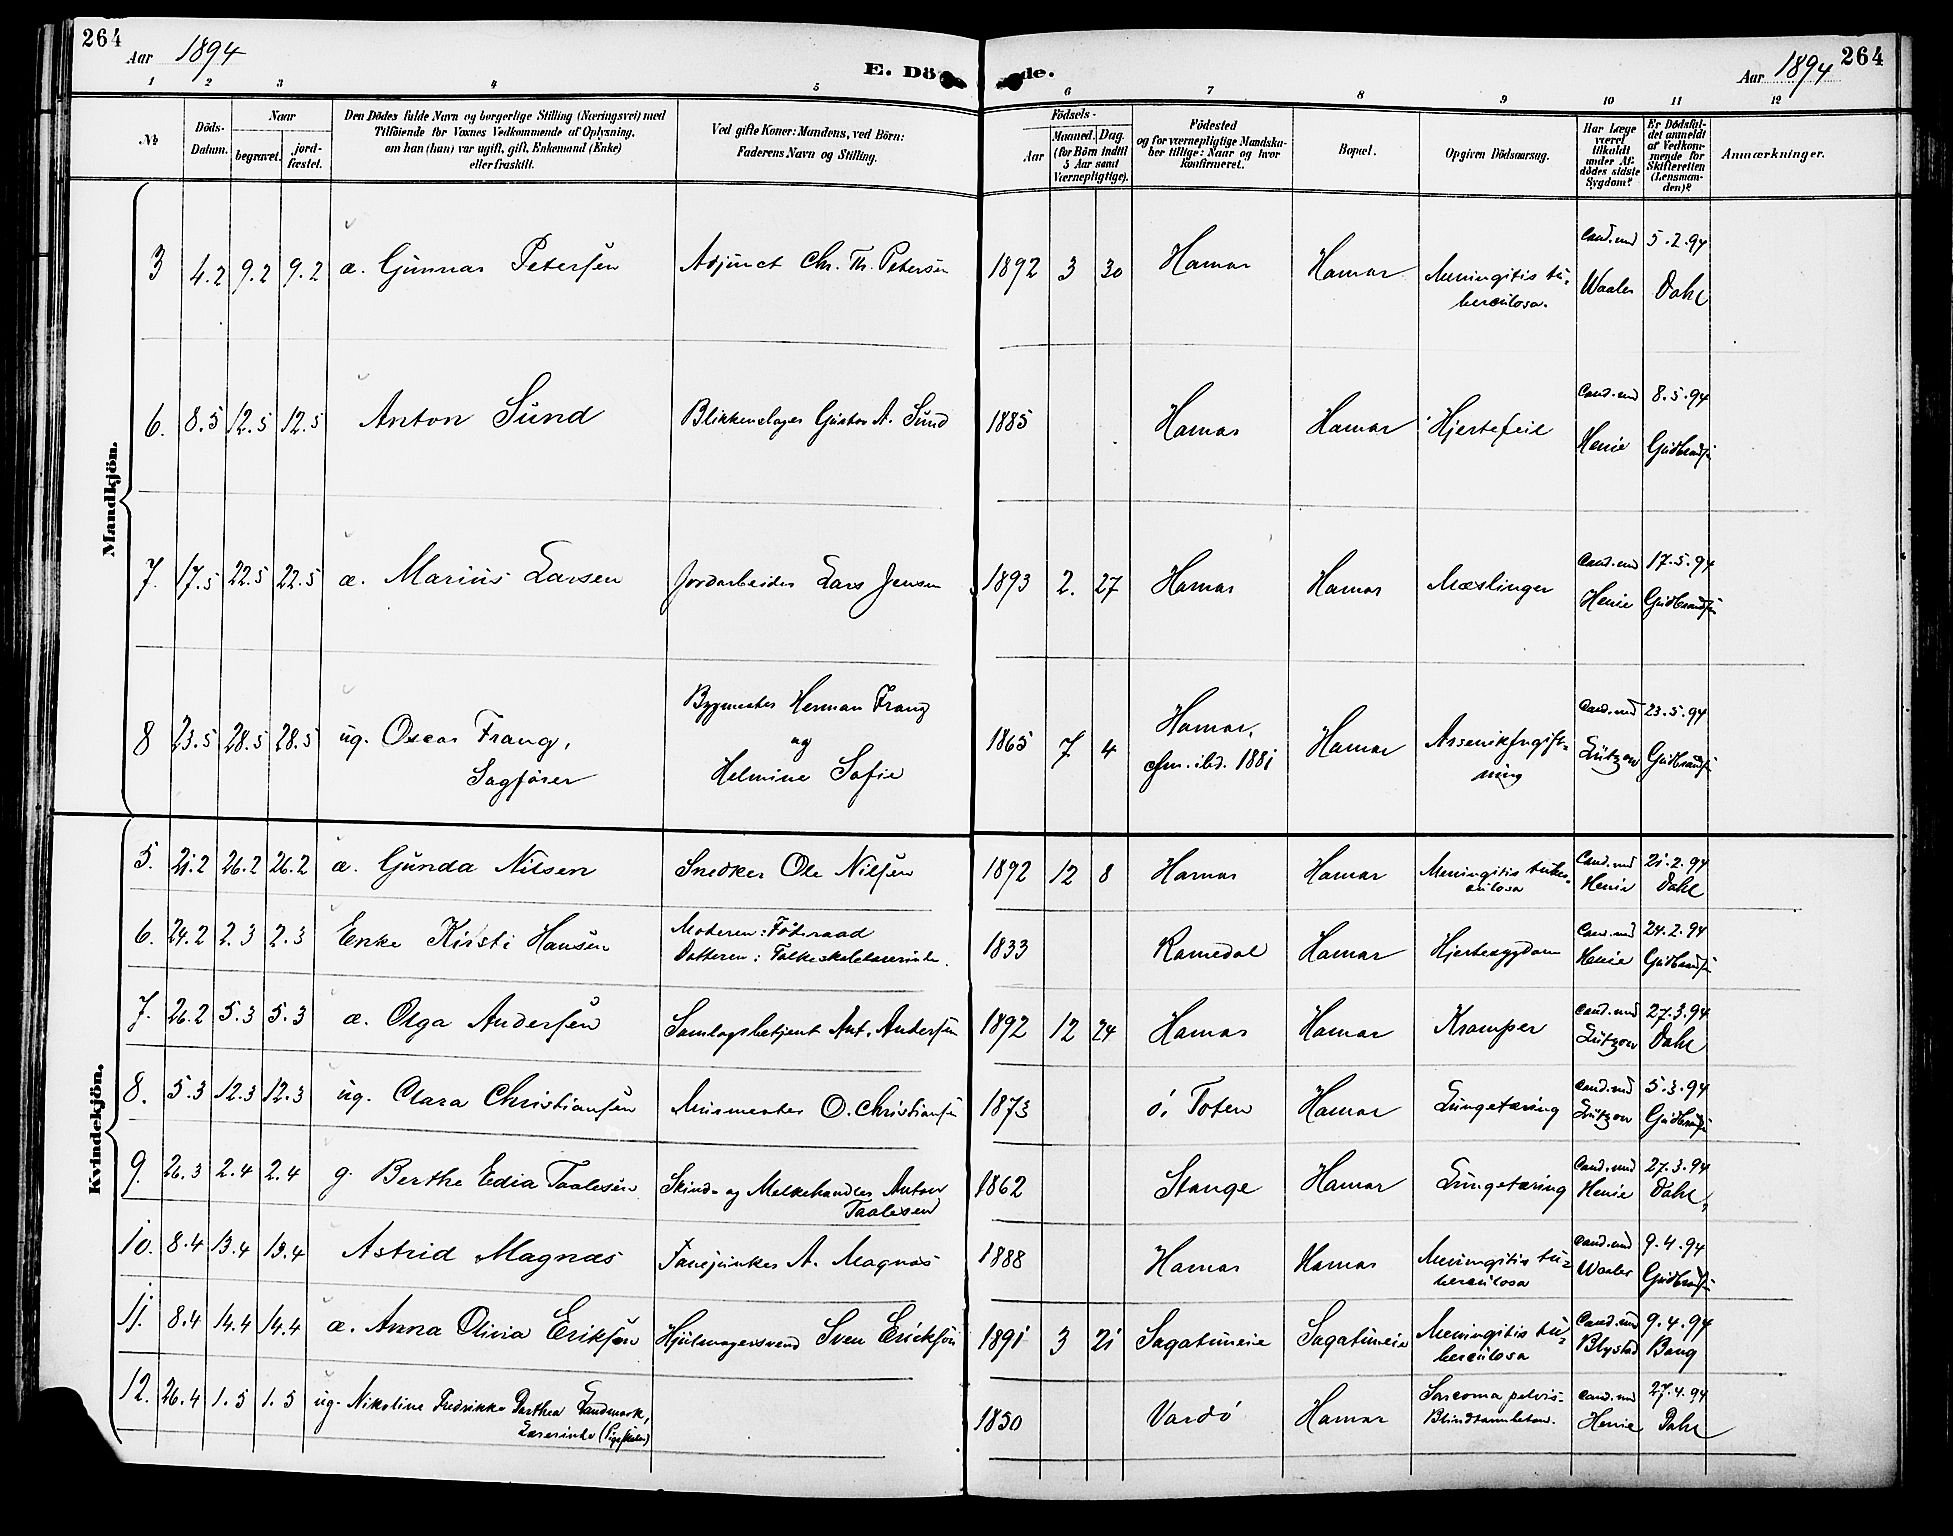 264
Aar 1894
E. Dö
de.
Aar 1894
264
1 2 3 4 5 6 7 8 9 10 11 12
No
Döds-
Datum.
Naar
begravet.
jord-
fæstet.
Den Dödes fulde Navn og borgerlige Stilling (Næringsvei) med
Tilföiende for Voxnes Vedkommende af Oplysning,
om han (hun) var ugift, gift, Enkemand (Enke)
eller fraskilt.
Ved gifte Koner: Mandens, ved Börn:
Faderens Navn og Stilling.
Födsels-
Aar
Maaned.
Dag.
(for Börn indtil
5 Aar samt
Værnepligtige).
Födested
og for værnepligtige Mandska-
ber tillige: Naar og hvor
konfirmeret.
Bopæl.
Opgiven Dödsaarsag.
Har Læge
været
tilkaldt
under Af-
dödes sidste
Sygdom?
Er Dödsfal-
det anmeldt
af Vedkom-
mende for
Skifteretten
(Lensman-
den)?
Anmærkninger.
Mandkjön.
3 4.2 9.2 9.2 æ. Gunnar Petersen Adjunct Chr. Th. Petersen 1892 3 30 Hamar Hamar Meningitis tu-
berculosa. Cand.med Waaler 5.2.94 Dahl
6. 8.5 12.5 12.5 Anton Sund Blikkenslager Gustav A. Sund 1885 Hamar Hamar Hjertefeil Cand.med Henie 8.5.94 Gudbrandsen
7. 17.5 22.5 22.5 æ. Marius Larsen Jordarbeider Lars Jensen 1893 2. 27 Hamar Hamar Mæslinger Cand.med Henie 17.5.94 Gudbrandsen
8 23.5 28.5 28.5 ug. Oscar Frang,
Sagförer
Bygmester Herman Frang
og
Helmine Sofie
1865 7 4 Hamar,
cfm. ibd. 1881 Hamar Arsenikforgift-
ning Cand.med Lützow 23.5.94 Gudbrandsen
Kvindekjön.
5. 21.2 26.2 26.2 æ. Gunda Nilsen Snedker Ole Nilsen 1892 12 8 Hamar Hamar Meningitis tuber-
culosa Cand.med Henie 21.2.94 Dahl
6. 24.2 2.3 2.3 Enke Kirsti Hansen Moderen: Föderaad
Datteren: Folkeskolelærerinde. 1833 Romedal Hamar Hjertesygdom Cand.med Henie 24.2.94 Gudbrandsen
7. 26.2 5.3 5.3 æ. Olga Andersen Samlagsbetjent Ant. Andersen 1892 12 24 Hamar Hamar Kramper Cand.med Lützow 27.3.94 Dahl
8. 5.3 12.3 12.3 ug. Clara Christiansen Murmester O. Christiansen 1873 ö. Toten Hamar Lungetæring Cand.med Lützow 5.3.94 Gudbrandsen
9. 26.3 2.4 2.4 g. Berthe Edia Taalesen Skind- og Melkehandler Anton
Taalesen 1862 Stange Hamar Lungetæring Cand.med Henie 27.3.94 Dahl
10. 8.4 13.4 13.4 Astrid Magnæs Fanejunker A. Magnæs 1888 Hamar Hamar Meningitis tu-
berculosa Cand.med Waaler 9.4.94 Gudbrandsen
11. 8.4 14.4 14.4 æ. Anna Olivia Eriksen Hjulmagersvend Sven Erickson 1891 3 21 Sagatuneie Sagatuneie Meningitis tu-
berculosa Cand.med Blystad 9.4.94 Bang
12. 26.4 1.5 1.5 ug. Nikoline Fredrikke Dorthea Landmark,
Lærerinde (Pigeskolen) 1850 Vardö Hamar Sarcoma pelvis- Cand.med Henie 27.4.94 Dahl